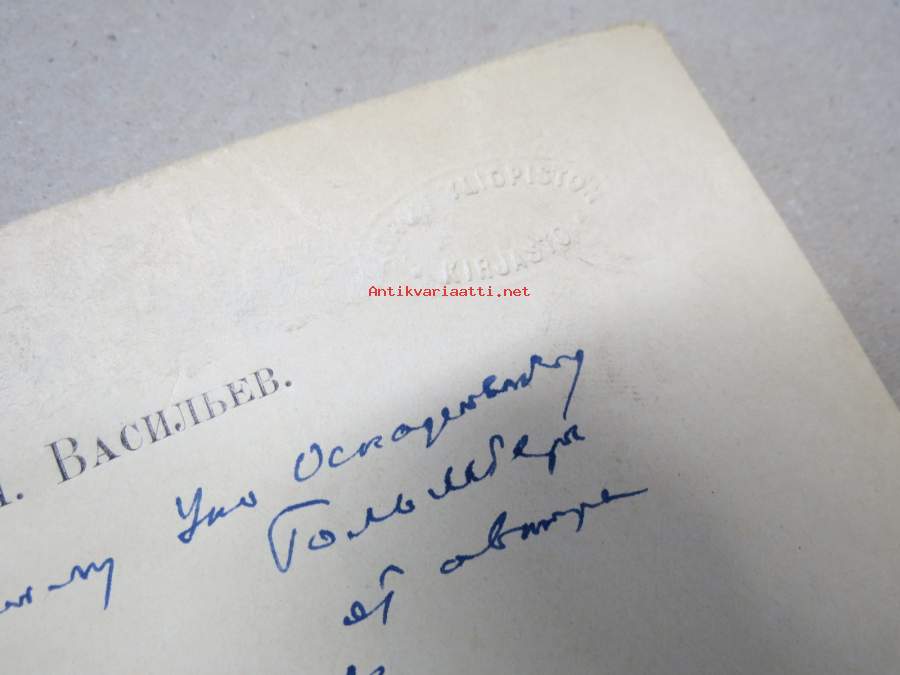 YLIOPISTON
KIRJASTO
Antikvariaatti.net
ВАСИЛЬЕВ.
Уно Оскаровичу
Гольмберг
от автора